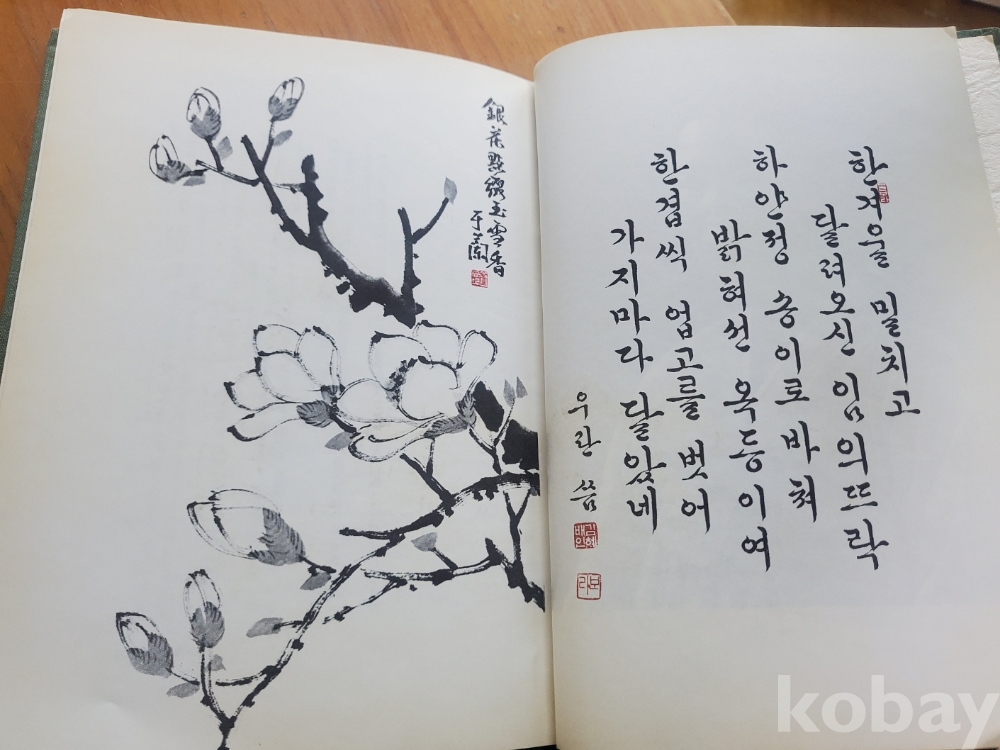 銀花點綴玉雪香
于蘭
한겨울 밀치고
달려오신 임의뜨락
하얀정 송이로 바쳐
밝혀선 옥등이여
한겹씩 업고를 벗어
가지마다 달았네
우란 씀
kobay